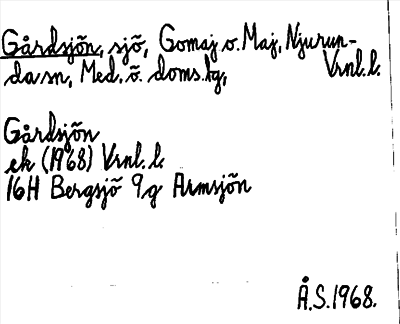 Gårdsjön, sjö, Gomaj o. Maj, Njurun-
da sn, Med. ö. doms.hg, Vrnl. l.
Gårdsjön
ek (1968) Vrnl. l.
16H Bergsjö 9g Armsjön
Å.S. 1968.